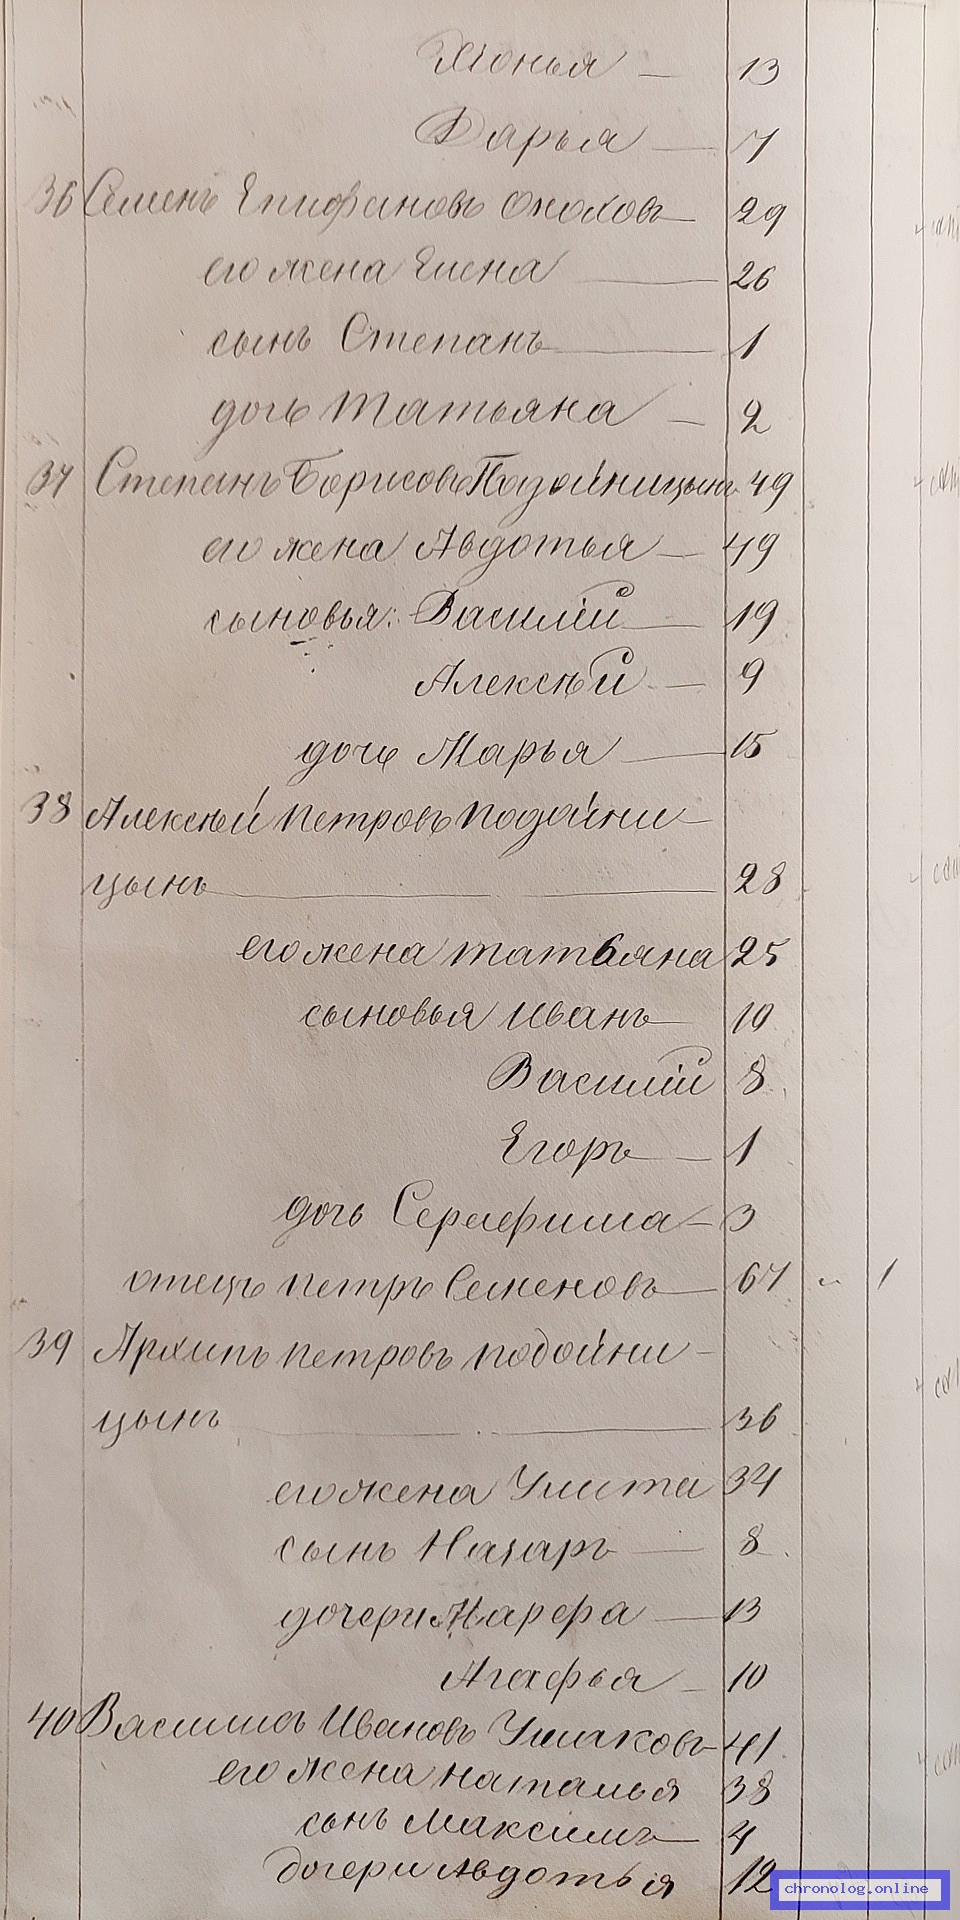 Хіонья — 13
Дарья — 7
36 Семенъ Епифановъ Охоховъ 29
его жена Елена — 26
сынъ Степанъ — 1
дочь Татьяна — 2
37 Степанъ Борисовъ Подойницынъ 49
его жена Авдотья — 49
сыновья: Василій — 19
Алексѣй — 9
дочь Марья — 15
38 Алексѣй Петровъ Подойни-
цынъ — 28
его жена Татьяна 25
сыновья Иванъ — 10
Василій 8
Егоръ — 1
дочь Серафима — 3
отецъ Петръ Семеновъ — 67 1
39 Архипъ Петровъ Подойни-
цынъ — 36
его жена Улита 34
сынъ Назаръ — 8
дочери Марфа — 13
Агафья — 10
40 Василій Ивановъ Ушаковъ 41
его жена Наталья 38
сынъ Максимъ — 4
дочери Авдотья 12
chronolog.online